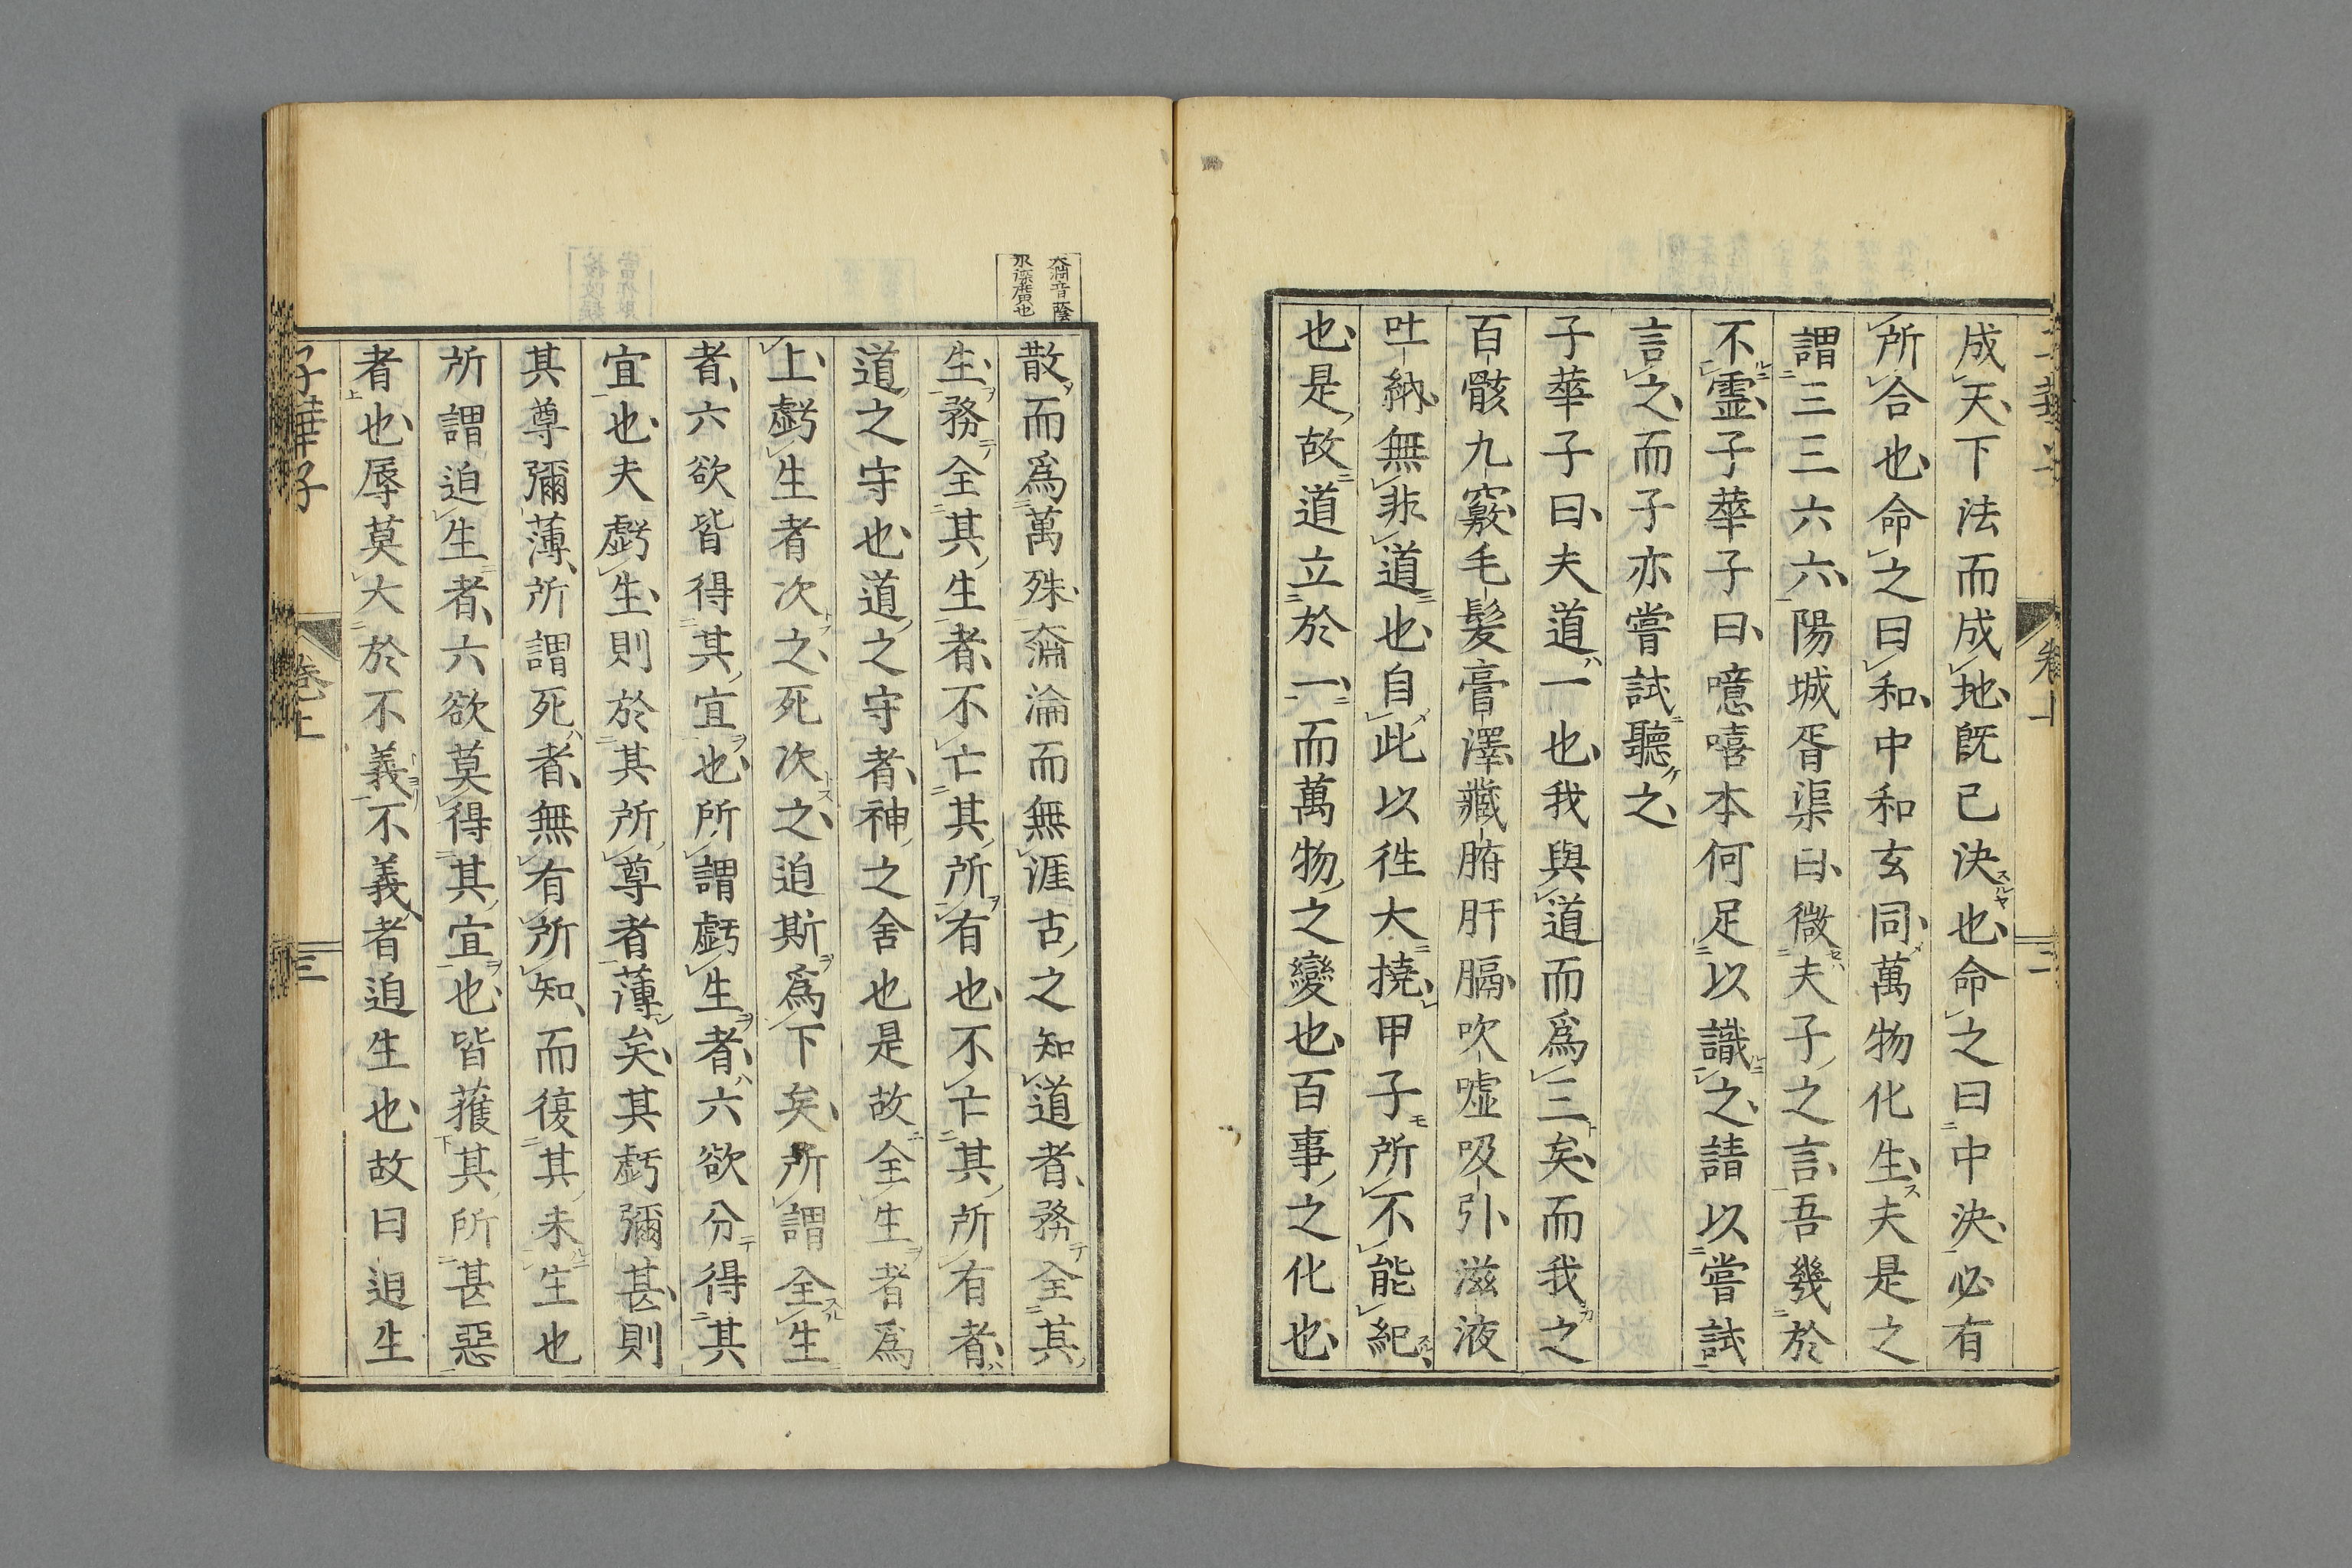 成天下法而成地既已決也命之曰中決必有
所合也命之曰和中和玄同萬物化生夫是之
謂三三六六陽城胥渠曰微夫子之言吾幾於
不靈子華子曰噫嘻本何足以識之請以嘗試
言之而子亦嘗試聽之
子華子曰夫道一也我與道而為三矣而我之
百骸九竅毛髮膏澤藏腑肝膈吹噓吸引滋液
吐納無非道也自此以徃大撓甲子所不能紀
也是故道立於一而萬物之變也百事之化也
散而為萬殊奫淪而無涯古之知道者務全其
生務全其生者不亡其所有也不亡其所有者
道之守也道之守者神之舍也是故全生者為
上虧生者次之死次之迫斯為下矣所謂全生
者六欲皆得其宜也所謂虧生者六欲分得其
宜也夫虧生則於其所尊者薄矣其虧彌甚則
其尊彌薄所謂死者無有所知而復其未生也
所謂迫生者六欲莫得其宜也皆蒦其所甚惡
者也辱莫大於不義不義者迫生也故曰迫生
奫音
水深廣也
子華子
卷上
三